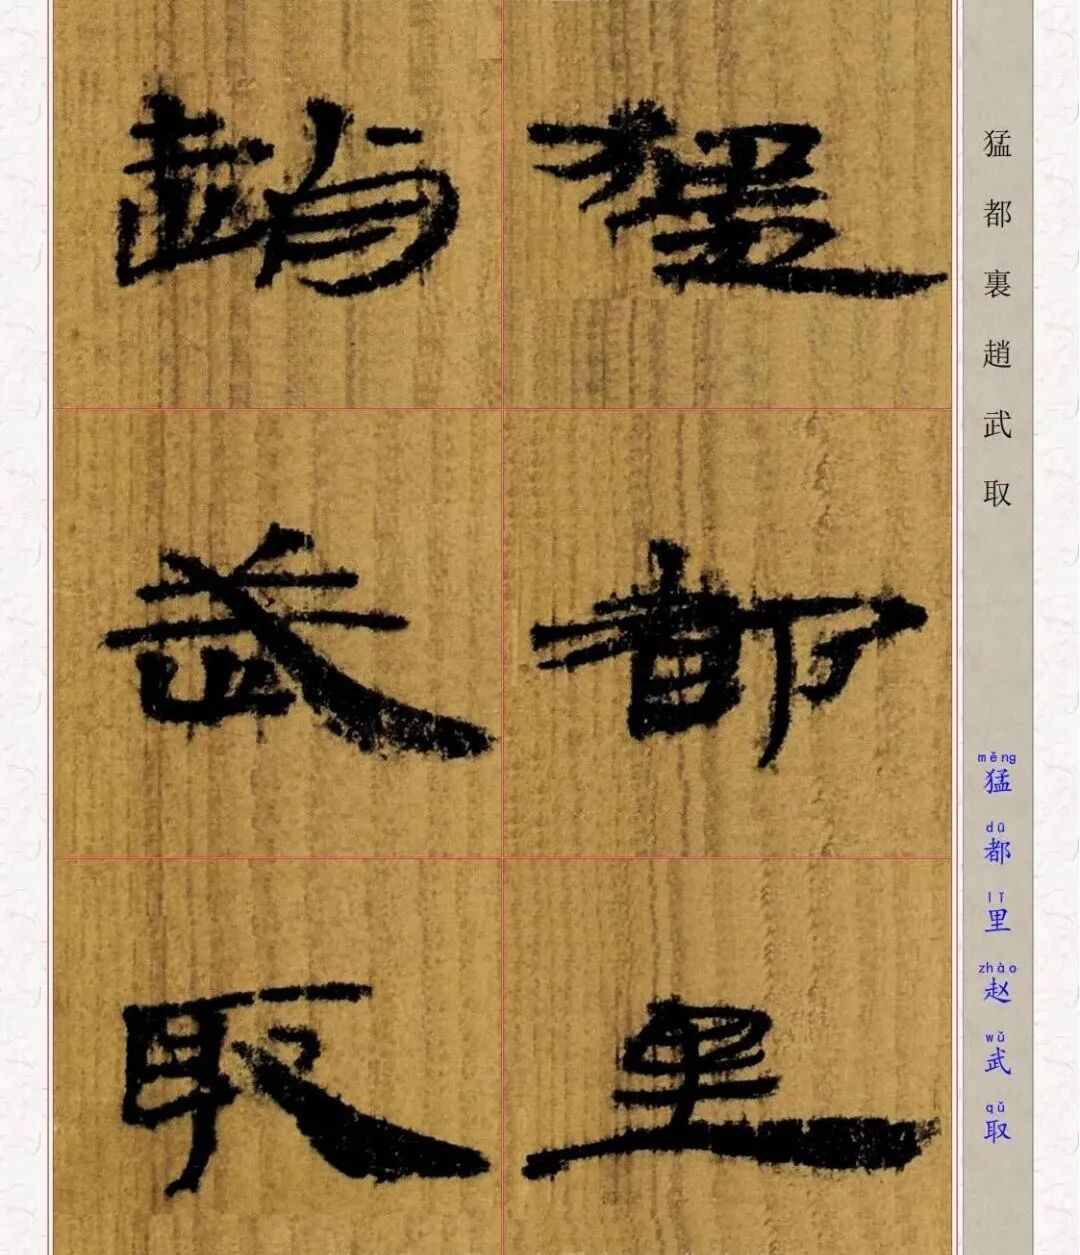 猛都裏趙武取
měng dū lǐ zhào wǔ qǔ
猛都里赵武取
猛都里
趙武取